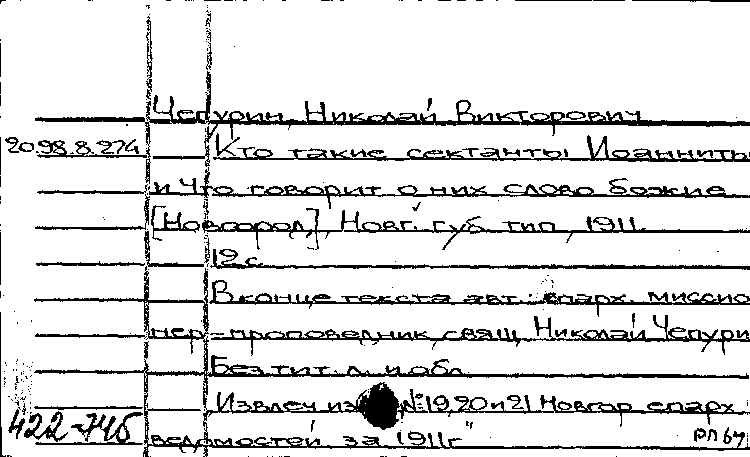 Чепурин, Николай Викторович
20.98.8.274 Кто такие сектанты Иоанниты
и что говорит о них слово божие
[Новгород], Новг. губ. тип., 1911.
19 с.
В конце текста авт.: епарх. миссио
нер-проповедник, свящ. Николай Чепурин
Без тит. л. и обл.
Извлеч из №19, 20 и 21 Новгор епарх.
422-746 ведомостей за 1911г"